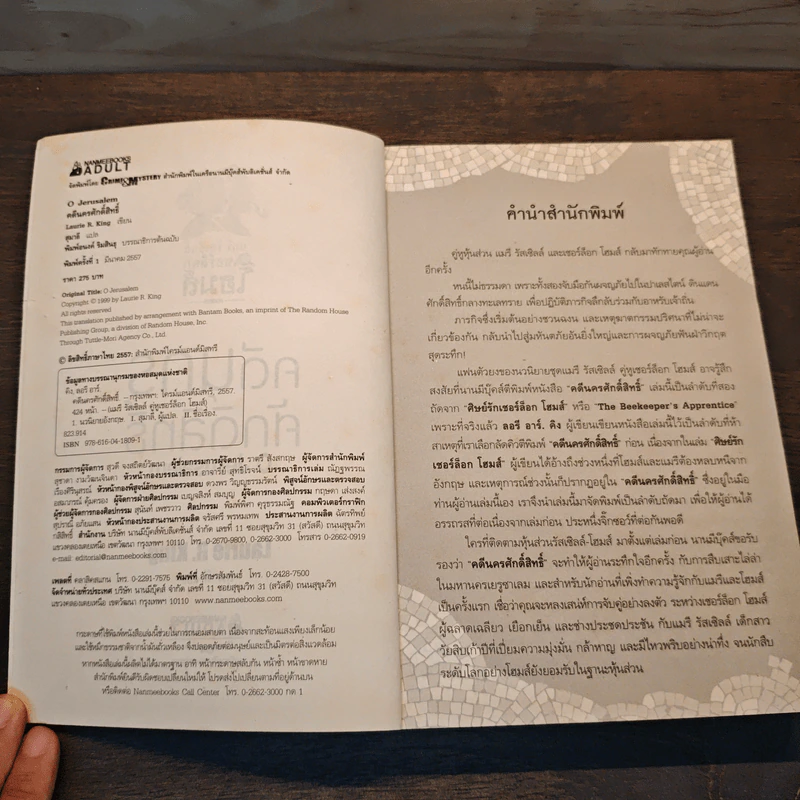 NANMEEBOOKS
ADULT
จัดพิมพ์โดย CRIME & MYSTERY สำนักพิมพ์ในเครือนานมีบุ๊คส์พับลิเคชั่นส์ จำกัด
O Jerusalem
คดีนครศักดิ์สิทธิ์
Laurie R. King เขียน
สุมาลี แปล
พิมพ์อนงค์ ริมสินธุ บรรณาธิการต้นฉบับ
พิมพ์ครั้งที่ 1 มีนาคม 2557
ราคา 275 บาท
Original Title: O Jerusalem
Copyright © 1999 by Laurie R. King
All rights reserved
This translation published by arrangement with Bantam Books, an imprint of The Random House
Publishing Group, a division of Random House, Inc.
Through Tuttle-Mori Agency Co., Ltd.
© ลิขสิทธิ์ภาษาไทย 2557: สำนักพิมพ์ไครม์แอนด์มิสทรี
ข้อมูลทางบรรณานุกรมของหอสมุดแห่งชาติ
คิง, ลอรี อาร์.
คดีนครศักดิ์สิทธิ์. -- กรุงเทพฯ : ไครม์แอนด์มิสทรี, 2557.
424 หน้า. -- (แมรี รัสเซิลล์ คู่หูเชอร์ล็อก โฮมส์)
1. นวนิยายอังกฤษ. I. สุมาลี, ผู้แปล. II. ชื่อเรื่อง.
823.914
ISBN 978-616-04-1809-1
กรรมการผู้จัดการ สุวดี จงสถิตย์วัฒนา ผู้ช่วยกรรมการผู้จัดการ ราตรี สังสกฤษ ผู้จัดการสำนักพิมพ์
สุชาดา งามวัฒนจินดา หัวหน้ากองบรรณาธิการ อาจารีย์ สุทธิโรจน์ บรรณาธิการเล่ม ณัฏฐพรรณ
เรืองศิรินุสรณ์ หัวหน้ากองพิสูจน์อักษรและตรวจสอบ ดวงพร วิญญูธรรมรัตน์ พิสูจน์อักษรและตรวจสอบ
อสมาภรณ์ คุ้มครอง ผู้จัดการฝ่ายศิลปกรรม เบญจสิงห์ สมบุญ ผู้จัดการกองศิลปกรรม กฤษดา เส่งสงค์
ผู้ช่วยผู้จัดการกองศิลปกรรม สุนันท์ เพชรวาว ศิลปกรรม พิมพ์พิศา คุรุธรรมณัฐ คอมพิวเตอร์กราฟิก
สุปราณี อภัยแสน หัวหน้ากองประสานงานการผลิต จรัสศรี พรหมเทพ ประสานงานการผลิต ฉัตรทิพย์
กสิสิทธิ์ สำนักงาน บริษัท นานมีบุ๊คส์พับลิเคชั่นส์ จำกัด เลขที่ 11 ซอยสุขุมวิท 31 (สวัสดี) ถนนสุขุมวิท
แขวงคลองเตยเหนือ เขตวัฒนา กรุงเทพฯ 10110 โทร. 0-2670-9800, 0-2662-3000 โทรสาร 0-2662-0919
e-mail: editorial@nanmeebooks.com
เพลตที่ คลาสิคสแกน โทร. 0-2291-7575 พิมพ์ที่ อักษรสัมพันธ์ โทร. 0-2428-7500
จัดจำหน่ายทั่วประเทศ บริษัท นานมีบุ๊คส์ จำกัด เลขที่ 11 ซอยสุขุมวิท 31 (สวัสดี) ถนนสุขุมวิท
แขวงคลองเตยเหนือ เขตวัฒนา กรุงเทพฯ 10110 www.nanmeebooks.com
กระดาษที่ใช้พิมพ์หนังสือเล่มนี้ช่วยในการถนอมสายตา เนื่องจากสะท้อนแสงเพียงเล็กน้อย
และใช้หมึกธรรมชาติจากน้ำมันถั่วเหลือง จึงปลอดภัยต่อมนุษย์และเป็นมิตรต่อสิ่งแวดล้อม
หากหนังสือเล่มนี้ผลิตไม่ได้มาตรฐาน อาทิ หน้ากระดาษสลับกัน หน้าซ้ำ หน้าขาดหาย
สำนักพิมพ์ยินดีรับผิดชอบเปลี่ยนใหม่ให้ โปรดส่งไปเปลี่ยนตามที่อยู่ด้านบน
หรือติดต่อ Nanmeebooks Call Center โทร. 0-2662-3000 กด 1
คำนำสำนักพิมพ์
คู่หูหุ้นส่วน แมรี รัสเซิลล์ และเชอร์ล็อก โฮมส์ กลับมาทักทายคุณผู้อ่าน
อีกครั้ง
หนนี้ไม่ธรรมดา เพราะทั้งสองจับมือกันผจญภัยไปในปาเลสไตน์ ดินแดน
ศักดิ์สิทธิ์กลางทะเลทราย เพื่อปฏิบัติภารกิจลึกลับร่วมกับอาหรับเจ้าถิ่น
ภารกิจซึ่งเริ่มต้นอย่างชวนฉงน และเหตุฆาตกรรมปริศนาที่ไม่น่าจะ
เกี่ยวข้องกัน กลับนำไปสู่มหันตภัยอันยิ่งใหญ่และการผจญภัยฟันฝ่าวิกฤต
สุดระทึก!
แฟนตัวยงของนวนิยายชุดแมรี รัสเซิลล์ คู่หูเชอร์ล็อก โฮมส์ อาจรู้สึก
สงสัยที่นานมีบุ๊คส์ตีพิมพ์หนังสือ "คดีนครศักดิ์สิทธิ์" เล่มนี้เป็นลำดับที่สอง
ถัดจาก "ศิษย์รักเชอร์ล็อก โฮมส์" หรือ "The Beekeeper's Apprentice"
เพราะที่จริงแล้ว ลอรี อาร์. คิง ผู้เขียนเขียนหนังสือเล่มนี้ไว้เป็นลำดับที่ห้า
สาเหตุที่เราเลือกลัดคิวตีพิมพ์ "คดีนครศักดิ์สิทธิ์" ก่อน เนื่องจากในเล่ม "ศิษย์รัก
เชอร์ล็อก โฮมส์" ผู้เขียนได้อ้างถึงช่วงหนึ่งที่โฮมส์และแมรีต้องหลบหนีจาก
อังกฤษ และเหตุการณ์ช่วงนั้นก็ปรากฏอยู่ใน "คดีนครศักดิ์สิทธิ์" ซึ่งอยู่ในมือ
ท่านผู้อ่านเล่มนี้เอง เราจึงนำเล่มนี้มาจัดพิมพ์เป็นลำดับถัดมา เพื่อให้ผู้อ่านได้
อรรถรสที่ต่อเนื่องจากเล่มก่อน ประหนึ่งจิ๊กซอว์ที่ต่อกันพอดี
ใครที่ติดตามหุ้นส่วนรัสเซิลล์-โฮมส์ มาตั้งแต่เล่มก่อน นานมีบุ๊คส์ขอรับ
รองว่า "คดีนครศักดิ์สิทธิ์" จะทำให้ผู้อ่านระทึกใจอีกครั้ง กับการสืบเสาะไล่ล่า
ในมหานครเยรูซาเลม และสำหรับนักอ่านที่เพิ่งทำความรู้จักกับแมรีและโฮมส์
เป็นครั้งแรก เชื่อว่าคุณจะหลงเสน่ห์การจับคู่อย่างลงตัว ระหว่างเชอร์ล็อก โฮมส์
ผู้ฉลาดเฉลียว เยือกเย็น และช่างประชดประชัน กับแมรี รัสเซิลล์ เด็กสาว
วัยสิบเก้าปีที่เปี่ยมความมุ่งมั่น กล้าหาญ และมีไหวพริบอย่างน่าทึ่ง จนนักสืบ
ระดับโลกอย่างโฮมส์ยังยอมรับในฐานะหุ้นส่วน